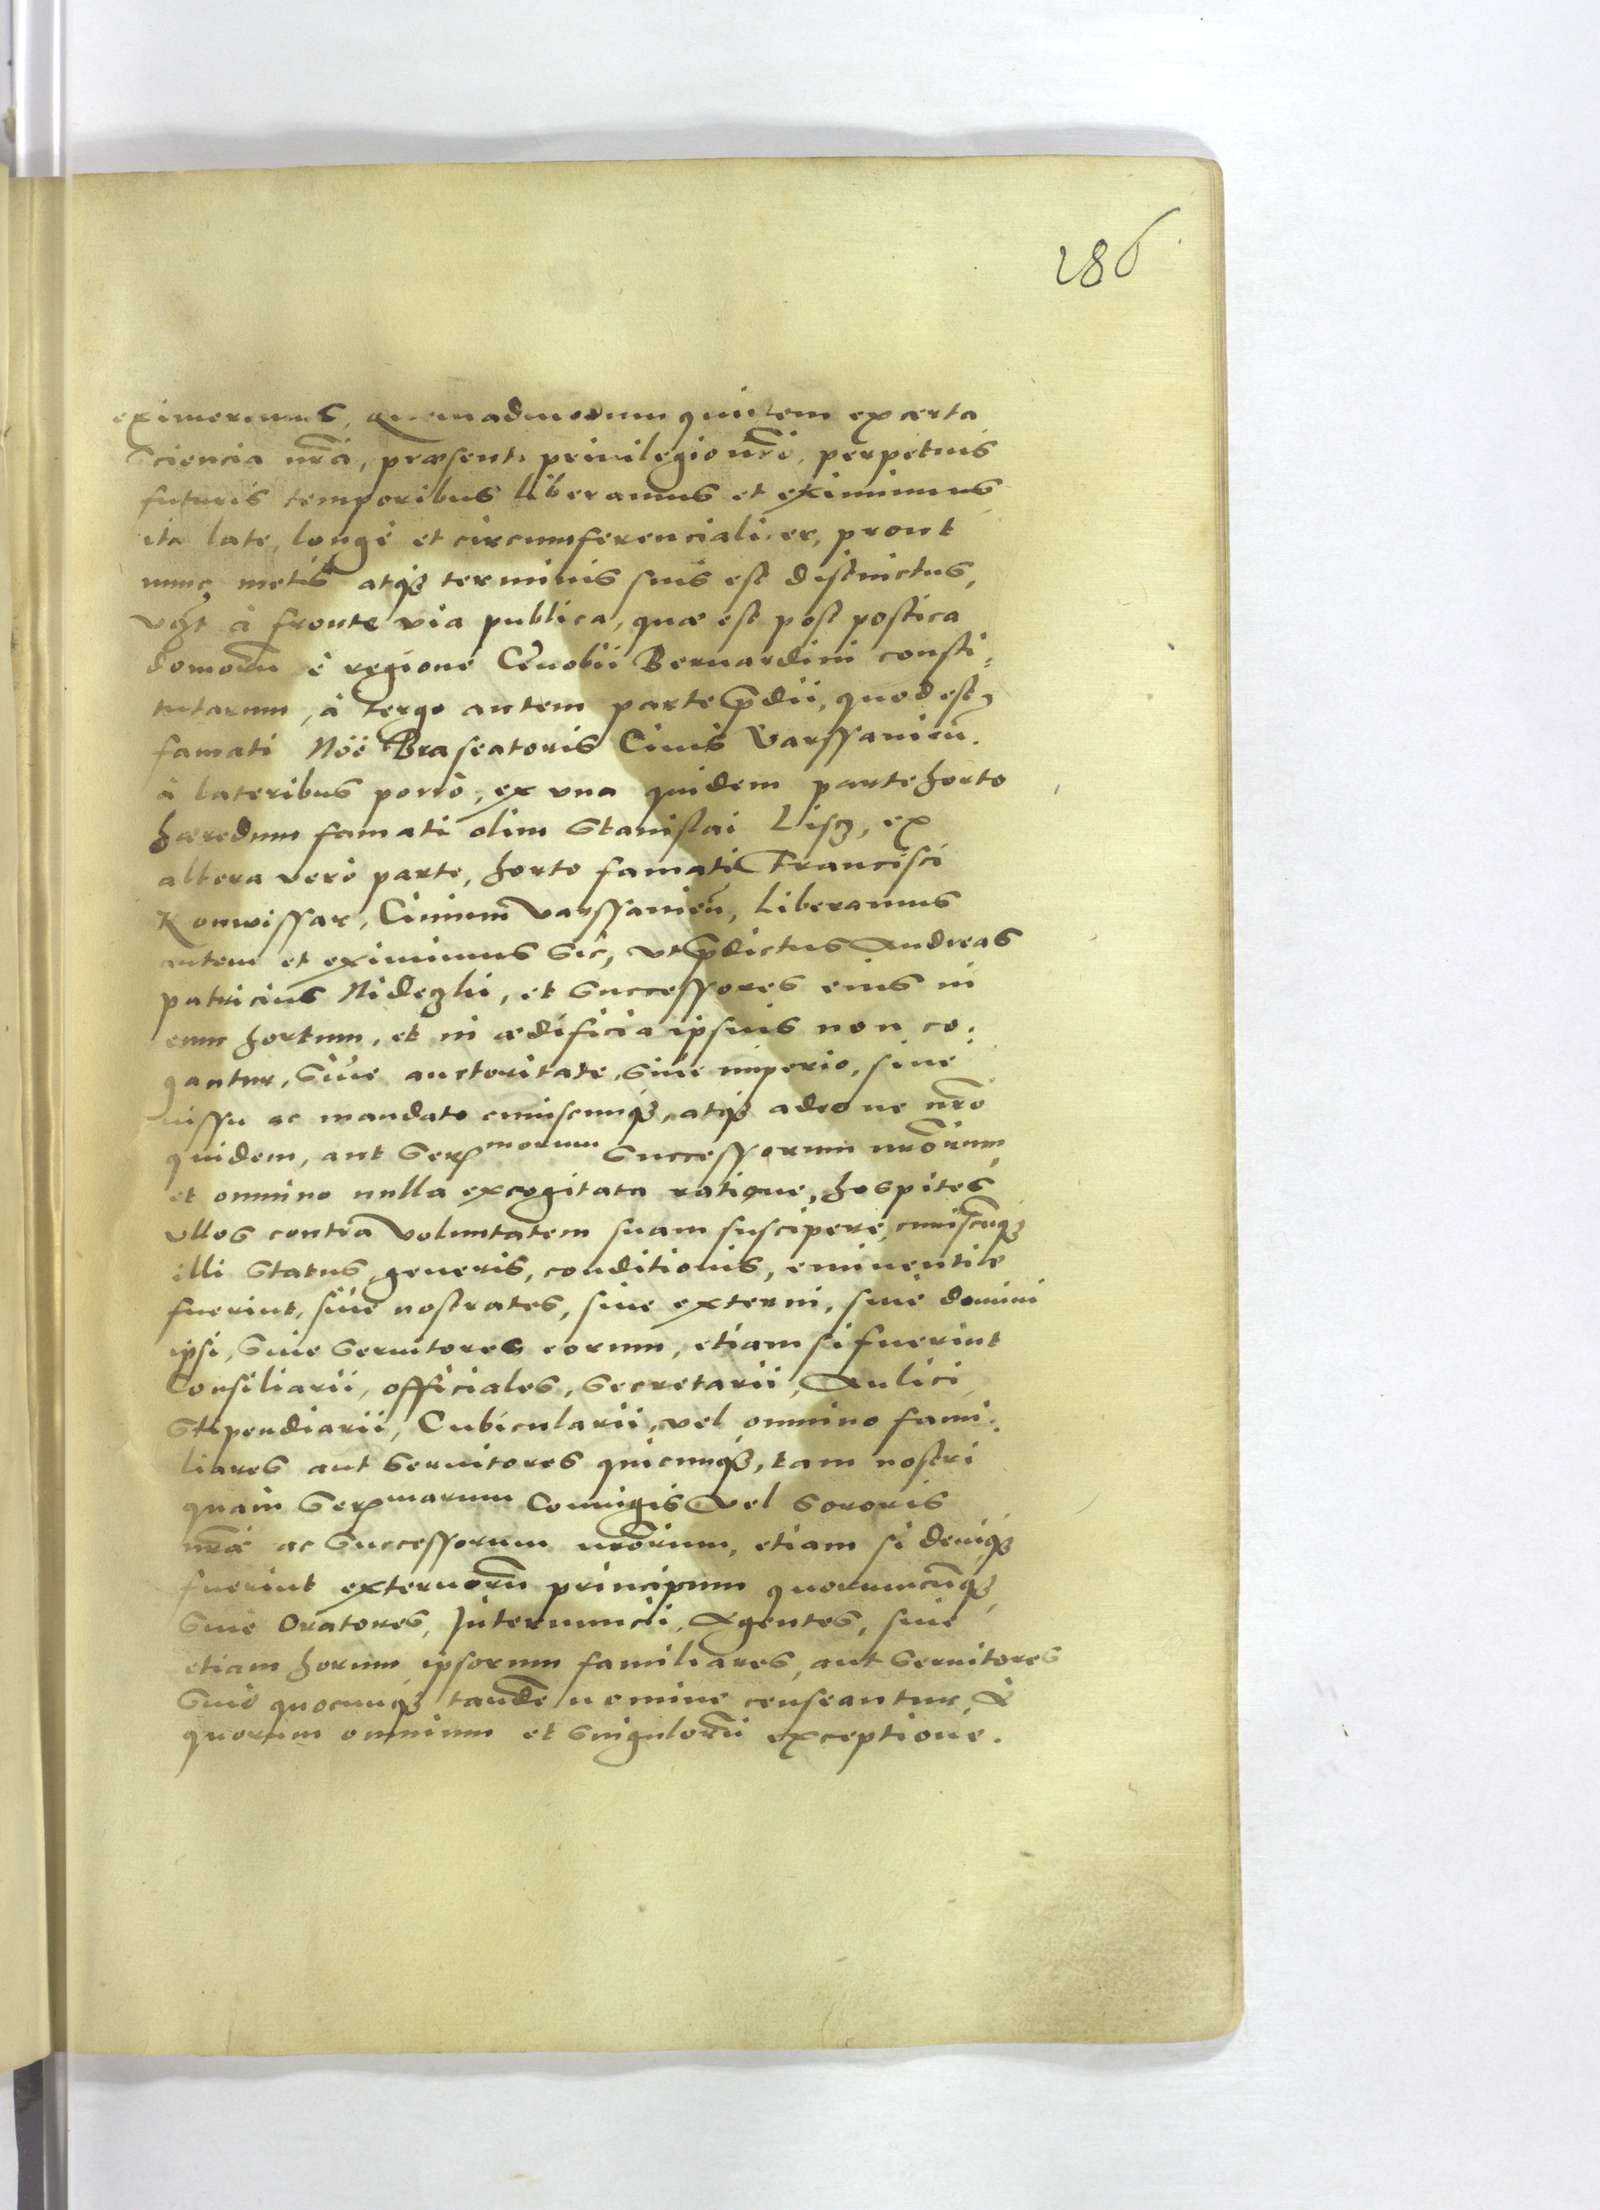 186
eximeremus, quemadmodum quidem ex certa
Sciencia nr̃a, præsenti privilegio nr̃o, perpetuis
futuris temporibus liberamus et eximimus
ita late, longè et circumferencialiter, prout
nunc metis atqꝫ terminis suis est distinctus,
vꝫt à fronte via publica, quæ est post postica
domorũ è regione Cœnobii Bernardini consti,
tutarum, à tergo autem parte p̃dii, quod est
famati Nöe Braseatoris Civis Varssavien̄.
à lateribus porrò, ex una quidem parte horto
hæredum famati olim Stanislai Lisꝫ, ex
altera verò parte, horto famati Francisci
Konwissar, Civium Varssavien̄, Liberamus
autem et eximimus sic, ut p̃dictus Andreas
patricius Nideczki, et Successores eius in
eum hortum, et in ædificia ipsius non co:
gantur, Siue auctoritate, Siue imperio, siue
iussu ac mandato cuiuscunqꝫ, atqꝫ adeo ne nr̃o
quidem, aut Ser[morum] Successorum nr̃orum
et omnino nulla excogitata ratione, hospites
ullos contra voluntatem suam suscipere, cuiuscũqꝫ
illi status, generis, conditionis, eminentiæ
fuerint, siue nostrates, siue externi, siue domini
ipsi, Siue Seruitores eorum, etiam si fuerint
Consiliarii, officiales, Secretarii, Aulici
Stipendiarii, Cubicularii, vel omnino fami:
liares aut Seruitores quicunqꝫ, tam nostri
quàm Ser[marum] Coniugis vel Sororis
nr̃æ ac Successorum nr̃orum, etiam si deniqꝫ
fuerint externorũ principum quorumcũqꝫ,
Siue Oratores, Internuncii, Agentes, siue
etiam horum ipsorum familiares, aut Seruitores
Siue quocunqꝫ tandē nomine censeantur, A
quorum omnium et Singulorũ exceptione.